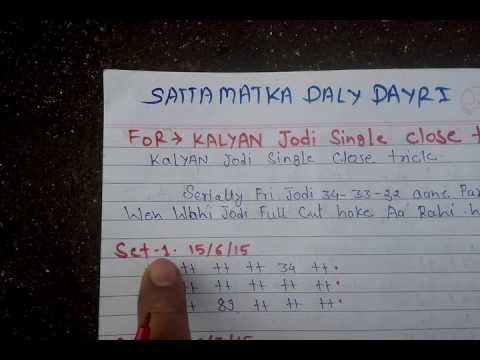 SATTA MATKA DALY DAYRI
FOR → KALYAN Jodi Single Close t
KALYAN Jodi Single Close trick.
Serially Fri Jodi 34-33-32 aane Par
Wen Wahi Jodi Full Cut hoke Aa Rahi h
Set-1. 15/6/15
++ ++ ++ 34 ++.
++ ++ ++ ++ ++.
++ 83 ++ ++ ++.